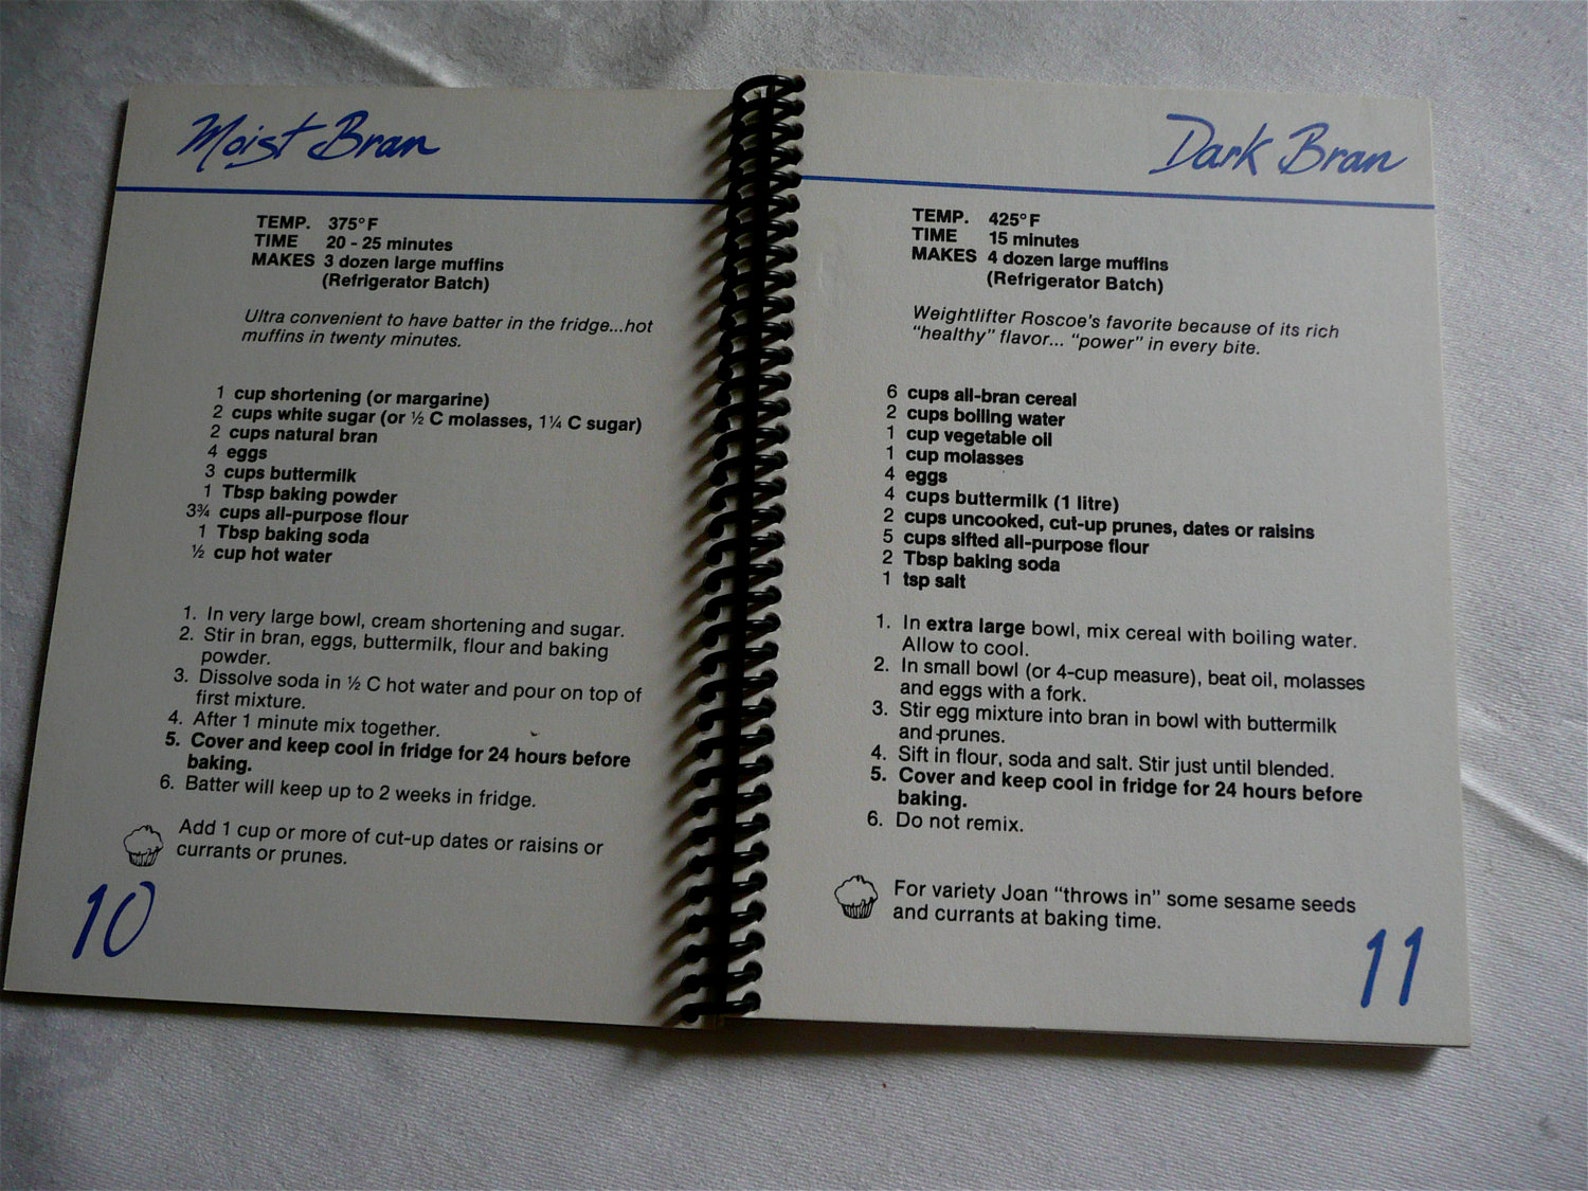 Moist Bran
TEMP. 375° F
TIME 20 - 25 minutes
MAKES 3 dozen large muffins
(Refrigerator Batch)
Ultra convenient to have batter in the fridge...hot
muffins in twenty minutes.
1 cup shortening (or margarine)
2 cups white sugar (or ½ C molasses, 1¼ C sugar)
2 cups natural bran
4 eggs
3 cups buttermilk
1 Tbsp baking powder
3¾ cups all-purpose flour
1 Tbsp baking soda
½ cup hot water
1. In very large bowl, cream shortening and sugar.
2. Stir in bran, eggs, buttermilk, flour and baking
powder.
3. Dissolve soda in ½ C hot water and pour on top of
first mixture.
4. After 1 minute mix together.
5. Cover and keep cool in fridge for 24 hours before
baking.
6. Batter will keep up to 2 weeks in fridge.
Add 1 cup or more of cut-up dates or raisins or
currants or prunes.
10
Dark Bran
TEMP. 425° F
TIME 15 minutes
MAKES 4 dozen large muffins
(Refrigerator Batch)
Weightlifter Roscoe's favorite because of its rich
"healthy" flavor... "power" in every bite.
6 cups all-bran cereal
2 cups boiling water
1 cup vegetable oil
1 cup molasses
4 eggs
4 cups buttermilk (1 litre)
2 cups uncooked, cut-up prunes, dates or raisins
5 cups sifted all-purpose flour
2 Tbsp baking soda
1 tsp salt
1. In extra large bowl, mix cereal with boiling water.
Allow to cool.
2. In small bowl (or 4-cup measure), beat oil, molasses
and eggs with a fork.
3. Stir egg mixture into bran in bowl with buttermilk
and prunes.
4. Sift in flour, soda and salt. Stir just until blended.
5. Cover and keep cool in fridge for 24 hours before
baking.
6. Do not remix.
For variety Joan "throws in" some sesame seeds
and currants at baking time.
11